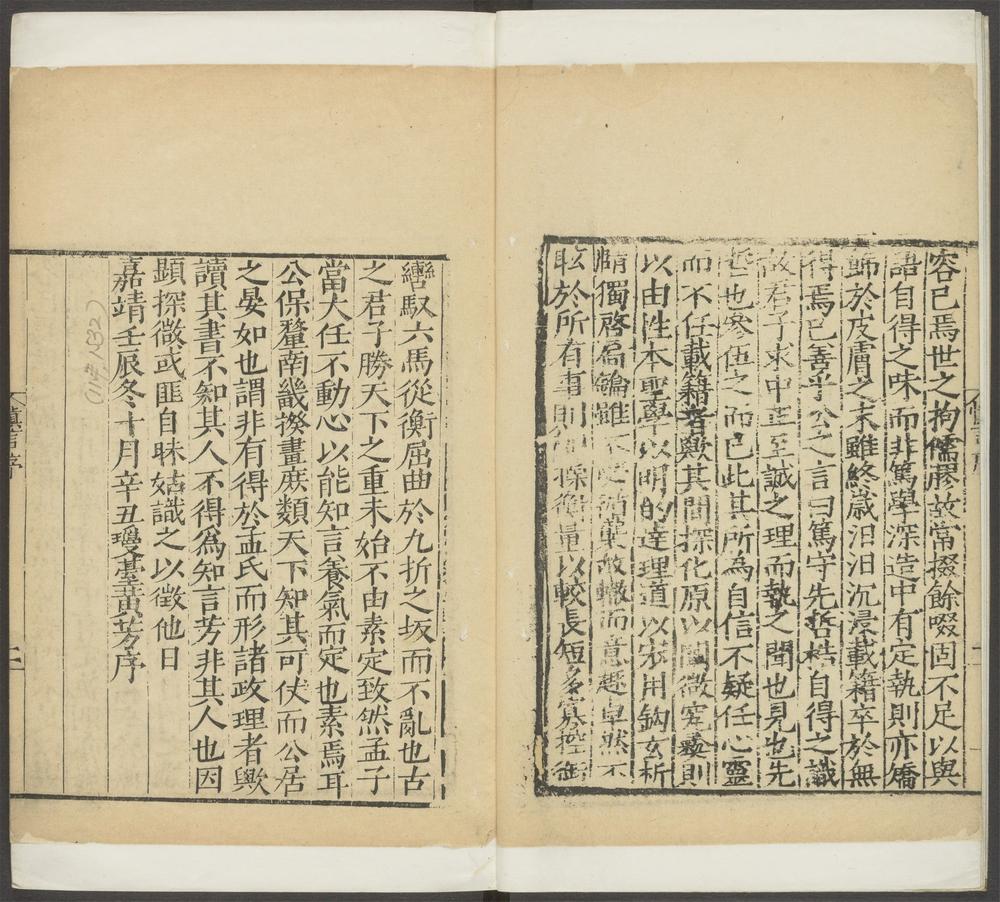 容己焉世之拘儒膠故常掇餘啜固不足以與
語自得之味而非篤學深造中有定執則亦矯
歸於皮膚之末雖終歲汨汨沉浸載籍卒於無
得焉已善乎公之言曰篤守先哲梏自得之識
故君子求中正至誠之理而執之聞也見也先
哲也參伍之而已此其所為自信不疑任心靈
而不任載籍者歟其間探化原以闡微究彝則
以由性本聖學以明的達理道以宋用鈎玄析
賾獨啓扃鑰雖不故轍而意趣卓然不
眩於所有事則操衡量以較長短多寡控御
轡馭六馬從衡屈曲於九折之坂而不亂也古
之君子勝天下之重未始不由素定致然孟子
當大任不動心以能知言養氣而定也素焉耳
公保釐南畿撩畫庶類天下知其可伏而公居
之晏如也謂非有得於孟氏而形諸政理者歟
讀其書不知其人不得為知言芳非其人也因
顯探微或匪自昧姑識之以徵他日
嘉靖壬辰冬十月辛丑瓊臺黃芳序
慎言序
二
(11年 1532)